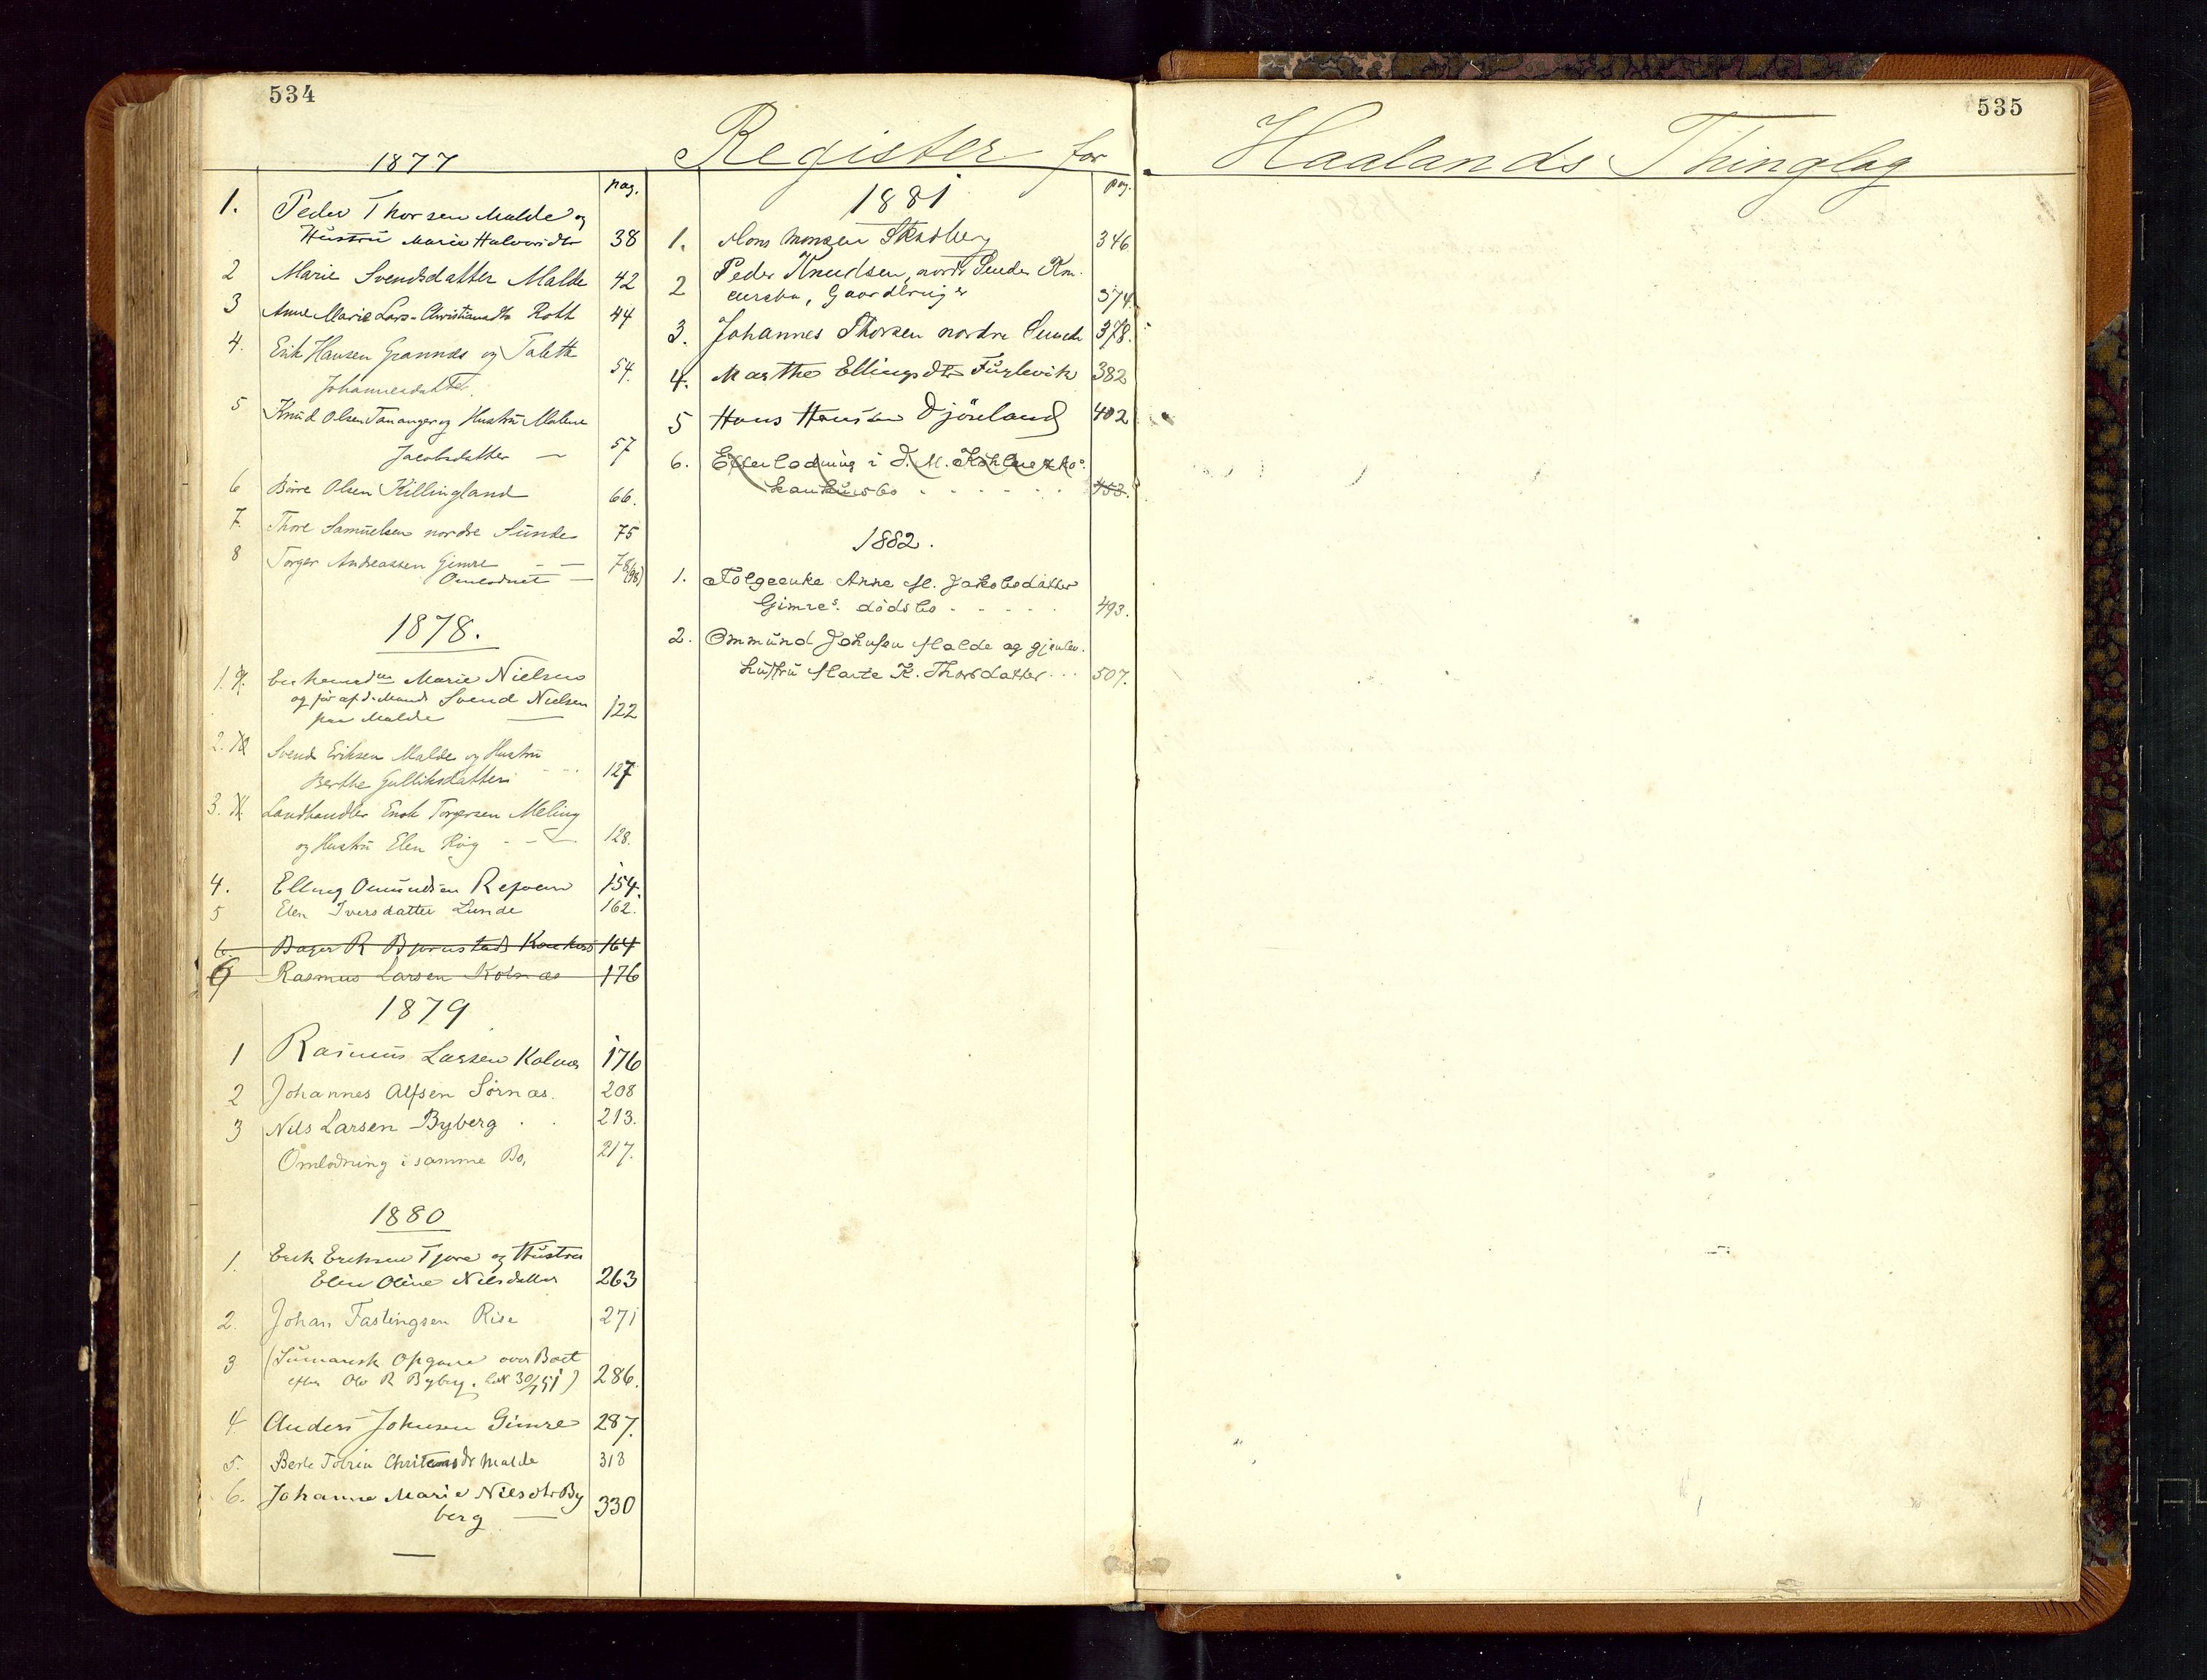 534
Register for
1877
pag.
1. Peder Thorsen Malde og
Hustru Marie Halvorsdtr 38
2 Marie Svendsdatter Malde 42
3 Anne Marie Lars-Christiansdtr Roth 44
4. Erik Hansen Grannes og Talette
Johannesdatter. 54.
5 Knud Olsen Tananger og Hustru Malene
Jacobsdatter — 57
6 Børe Olsen Killingland 66.
7. Thore Samuelsen nordre Sunde 75
8 Torger Andreassen Gimre — —
Omlodnet — 78(98)
1878.
1. Marie Nielsen
og før afd. Mand Svend Nielsen
paa Malde — 122
2. Svend Eriksen Malde og Hustru
Berthe Gulliksdatter - - . 127
3. Landhandler Enok Torgersen Meling
og Hustru Elen Røg - - 128.
4. Elling Omundsen Refven 154.
5 Elen Iversdatter Sunde 162.
6. Bager R Bjørnstads Konkurs 164
6 Rasmus Larsen Kolnæs 176
1879
1 Rasmus Larsen Kolnæs 176
2 Johannes Alfsen Sørnæs. 208
3 Nils Larsen Byberg . . 213.
Omlodning i samme Bo, 217.
1880
1. Erik Eriksen Tjora og Hustru
Elen Oline Nilsdatter 263
2. Johan Tastingsen Risa 271
3 (Sumarisk Opgave over Boet
efter Ole R Byberg. 30/ 51) 286.
4 Anders Johnsen Gimre 287.
5. Berte Tobria Christensdr Malde 313
6. Johanne Marie Nilsdtr By
berg — 330
pag.
1881
1. Mons Monsen Skadberg 346
2 Peder Knudsen, nordr Sunde Kon
cursbo, Gaardbruger 374.
3. Johannes Thorsen nordre Sunde 378.
4. Marthe Ellingsdtr Fuglevik 382
5 Hans Hansen Djøseland 402
6. Efterlodning i J. M. Køhler & Kos.
konkursbo . - - - - . - 453.
1882.
1. Følgeenke Anne M. Jakobsdatter
Gimres. dødsbo - - - - - 493.
2. Ommund Johnsen Malde og gjenlev.
hustru Marte K. Thorsdatter . . . 507.
535
Haalands Thinglag